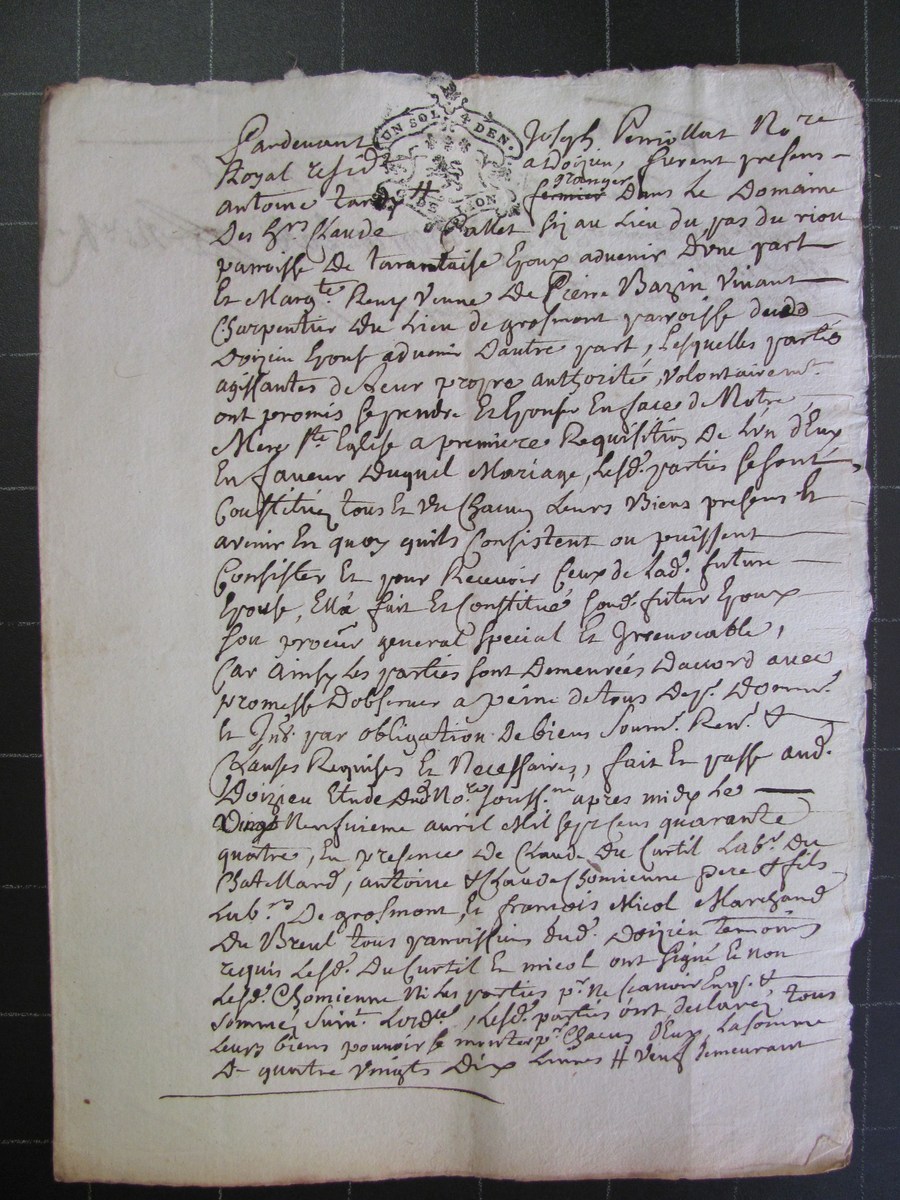 Pardevant Joseph Perrillat No.re
Royal resid.t a Doizieu, furent presens
antoine tardy # granger fermier Dans Le Domaine
Des h.rs Claude Pallet sis au Lieu du pas du riou
parroisse De tarantaise Epoux advenir D'une part
Et Marg.te Remy Veuve De Pierre Bazin Vivant
Charpentier Du Lieu de grosmont parroisse dud
Doizieu Epouse advenir D'autre part, Lesquelles parties
agissantes de Leur propre authorité, Volontairem.t
ont promis se prendre Et Epouser En face de Notre
Mere S.te Eglise a premiere Requisition De L'un d'Eux
En faveur Duquel Mariage, Lesd. parties se sont
Constitué tous Et Un Chacun Leurs Biens presens Et
avenir En quoy quils Consistent ou puissent
Consister Et pour Recevoir Ceux de Lad. future
Epouse, Ella fait Et Constitué sond. futur Epoux
son procur general special Et Irrevocable,
Car Ainsy Les parties sont Demeurées Daccord avec
promesse D'observer a peine de tous Dep. Domm.
Et Int. par obligation De biens soum. Ren. &
Clauses Requises Et Necessaires, fait Et passé aud.
Doizieu Etude Dud No.re souss.né apres midy Le
Vingt Neufvieme avril Mil sept Cens quarante
quatre, En presence De Claude Du Curtil Lab.r Du
Chatellard, antoine & Claude Chomienne pere & fils
Lab.rs De grosmont, Et francois Micol Marchand
Du Breul tous parroissiens dud. Doizieu temoins
requis Lesd. Du Curtil Et micol ont signé Et non
Lesd. Chomienne Ni Les parties p.r Ne scavoir Enq. &
sommés suiv.t Lord.ce, Lesd. parties ont declaré tous
Leurs biens pouvoir se monter p.r Chacun D'Eux La somme
De quatre Vingts Dix Livres # Veuf demeurant
UN SOL 4 DEN.
G. DE LYON